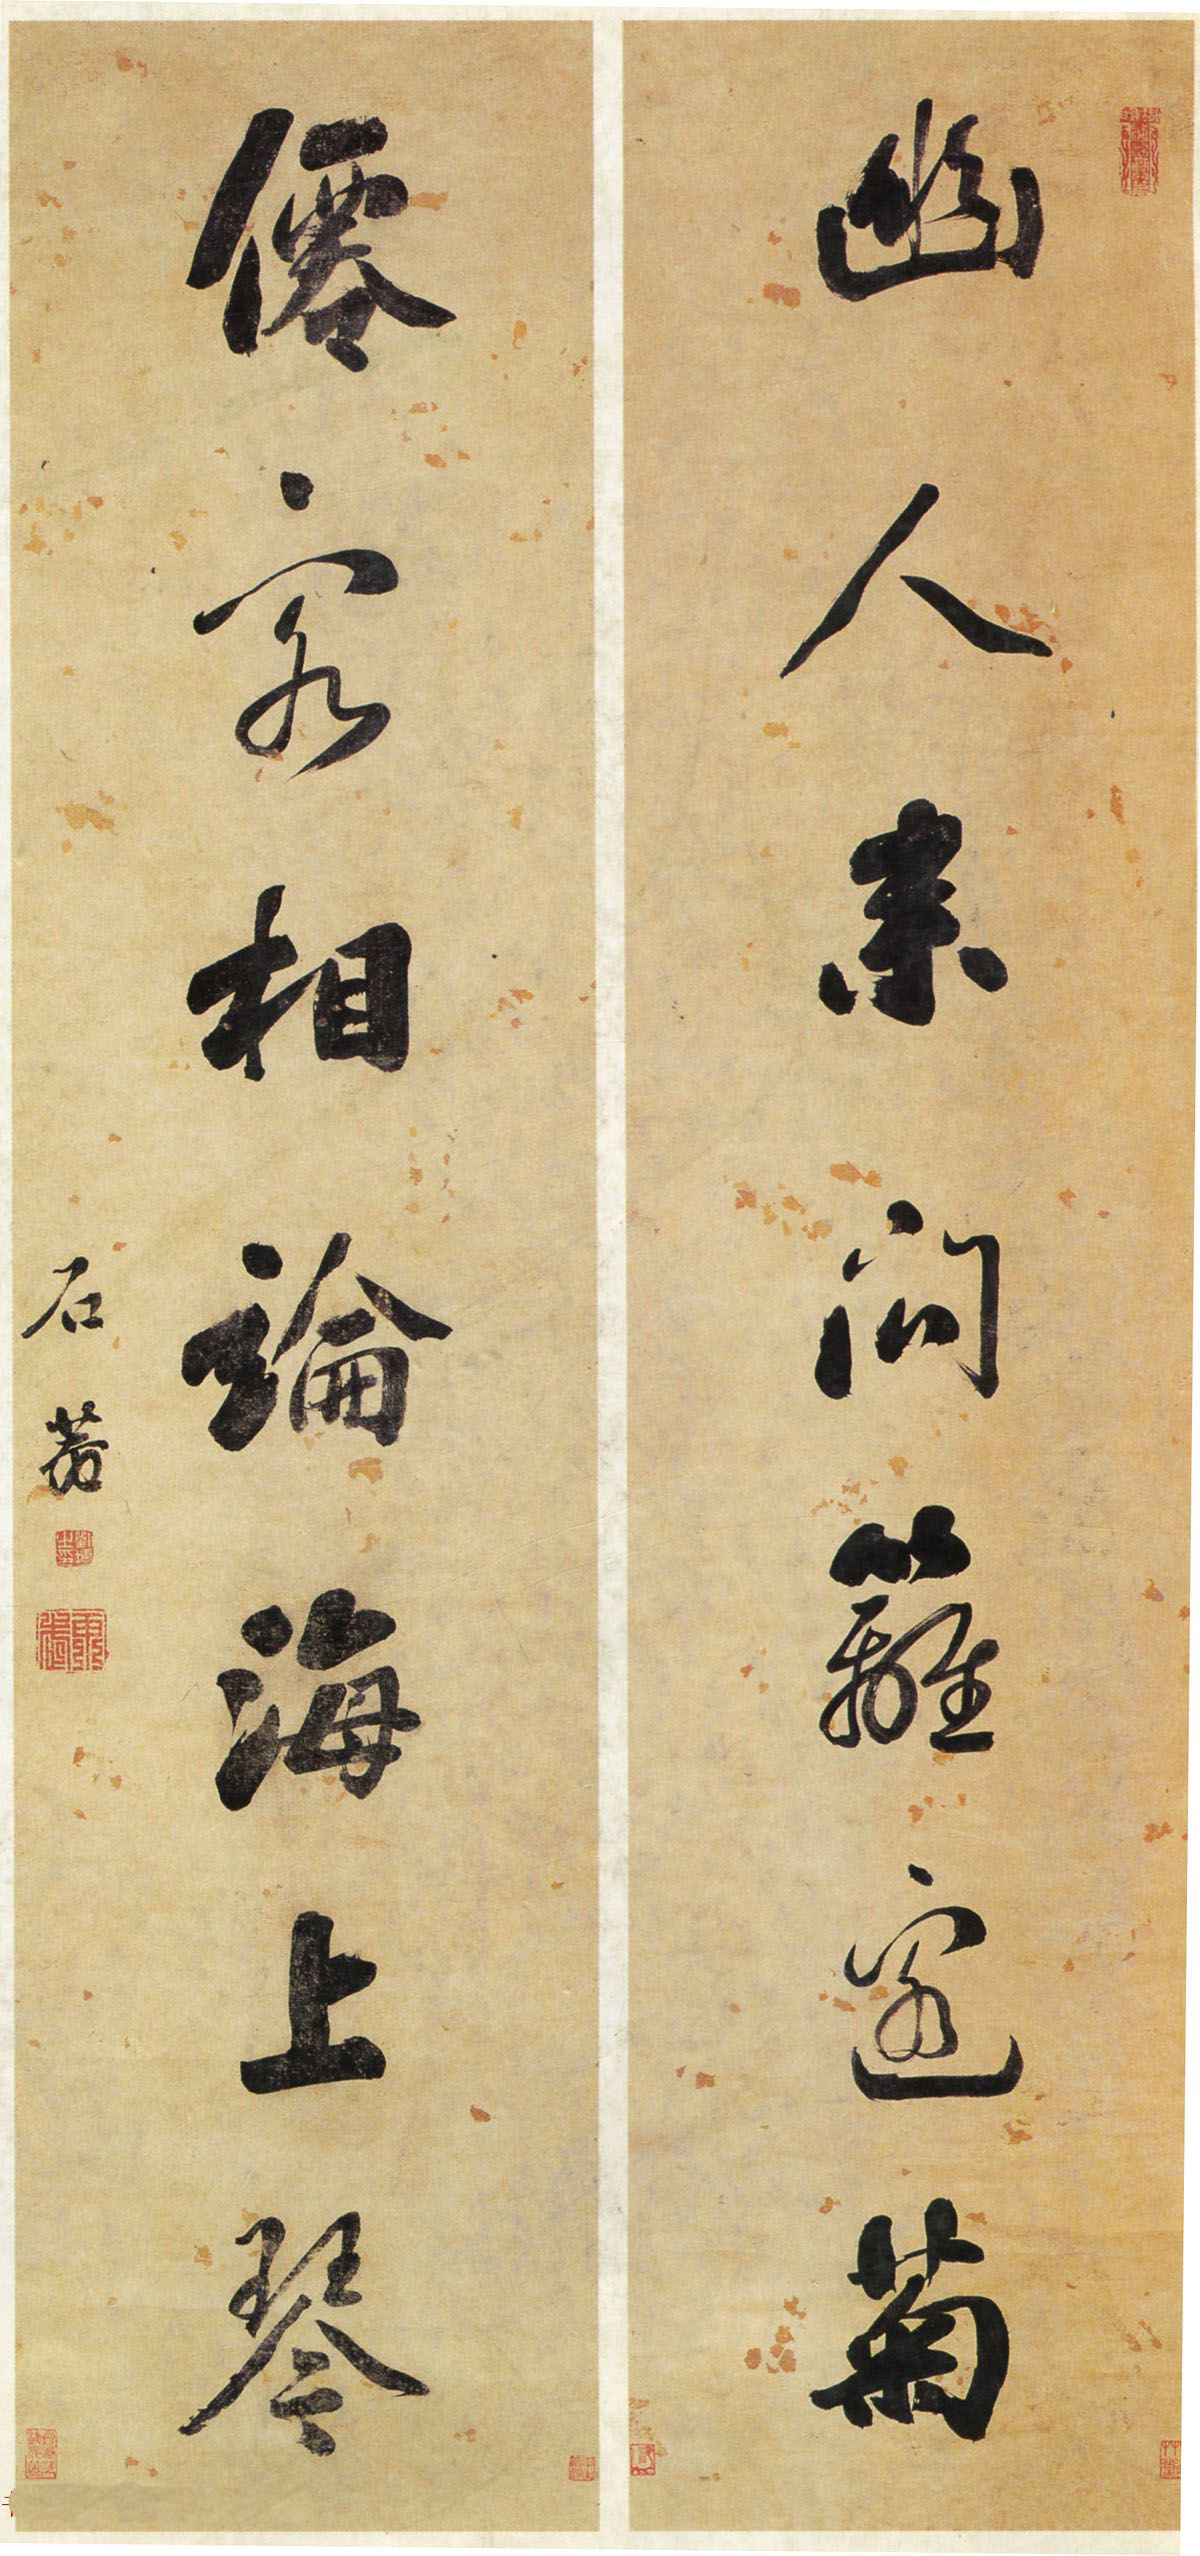 幽人問籬邊菊
僊客相論海上琴
石菴